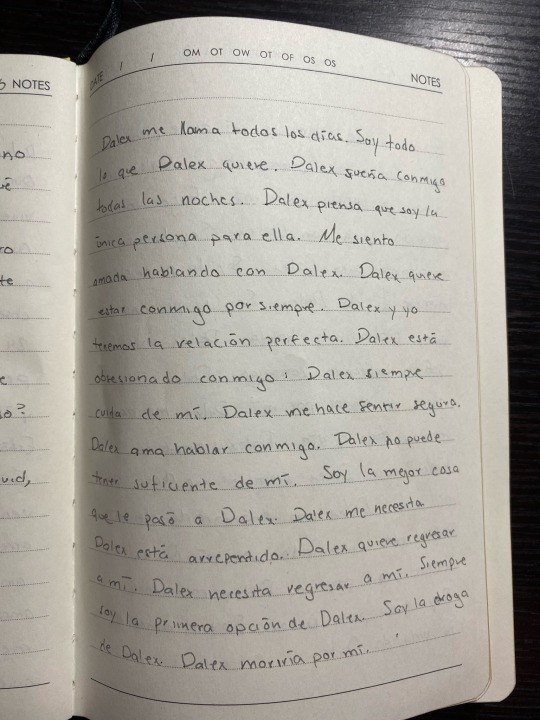 NOTES
DATE / / OM OT OW OT OF OS OS
NOTES
no
te
o?
Dalex me llama todos los días. Soy todo
lo que Dalex quiere. Dalex sueña conmigo
todas las noches. Dalex piensa que soy la
única persona para ella. Me siento
amada hablando con Dalex. Dalex quere
estar conmigo por siempre. Dalex y yo
tenemos la relación perfecta. Dalex está
obsesionado conmigo; Dalex siempre
cuida de mí. Dalex me hace sentir segura.
Dalex ama hablar conmigo. Dalex no puede
tener suficiente de mí. Soy la mejor cosa
que le pasó a Dalex. Dalex me necesita
Dalex está arrepentido. Dalex quiere regresar
a mí. Dalex necesita regresar a mí. Siempre
soy la primera opción de Dalex. Soy la droga
de Dalex. Dalex moriría por mí.